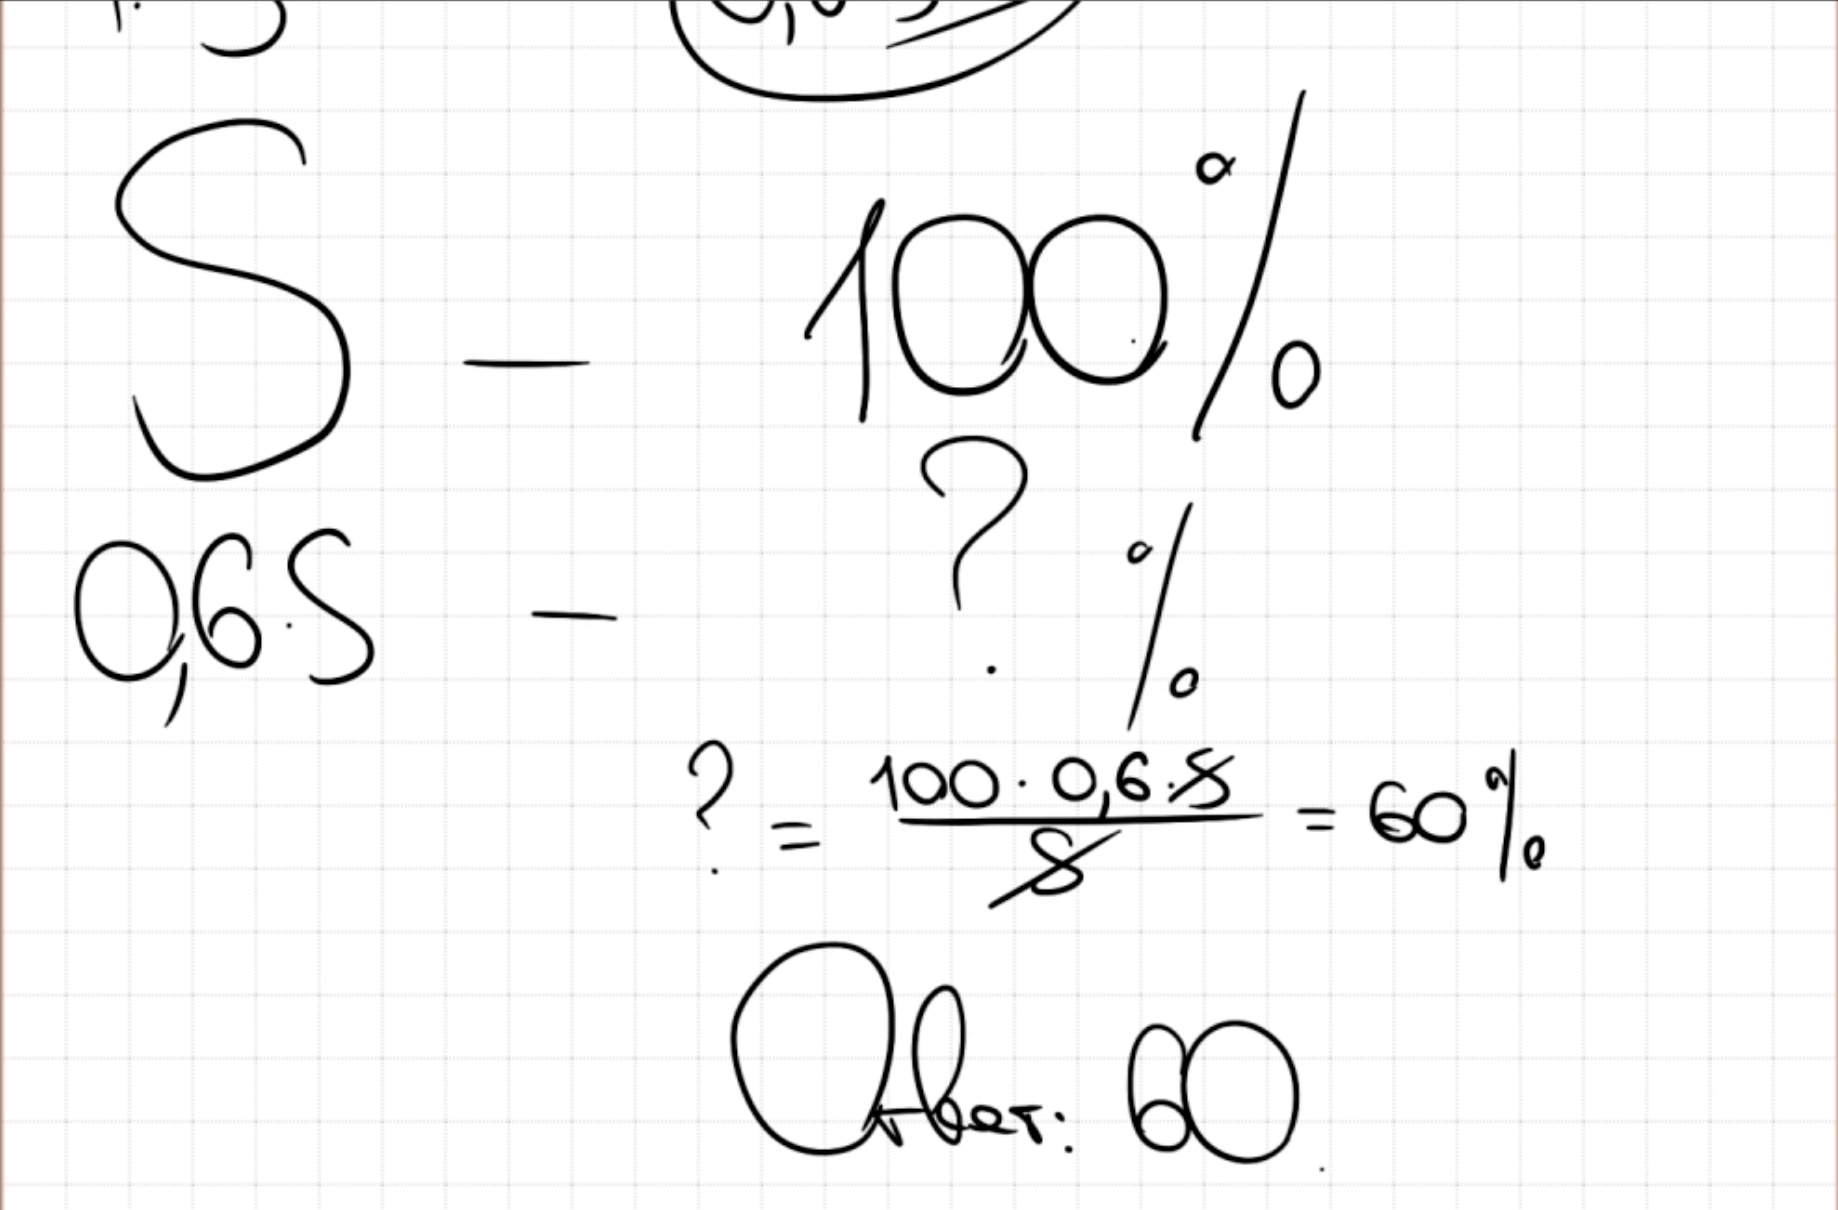 S — 100%
0,6·S — ? %
? = 100 · 0,6 · S / S = 60%
Ответ: 60